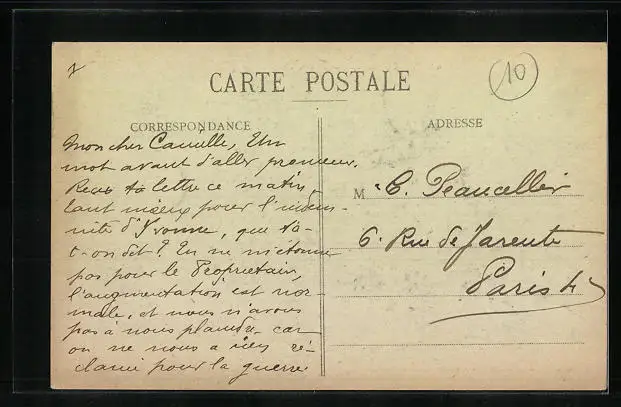 1
10
CARTE POSTALE
CORRESPONDANCE
ADRESSE
Mon cher Camille, Un
mot avant d'aller promener.
Reçu ta lettre ce matin,
tant mieux pour l'indem-
nité d'Yvonne, que t'a-
t-on dit? Tu ne m'étonne
pas pour le Propriétair,
l'augmentation est nor-
male, et nous n'avons
pas à nous plaindre, car
on ne nous a rien ré-
clamé pour la guerre.
M C. Peaucellier
6. Rue de Jarente
Paris 4